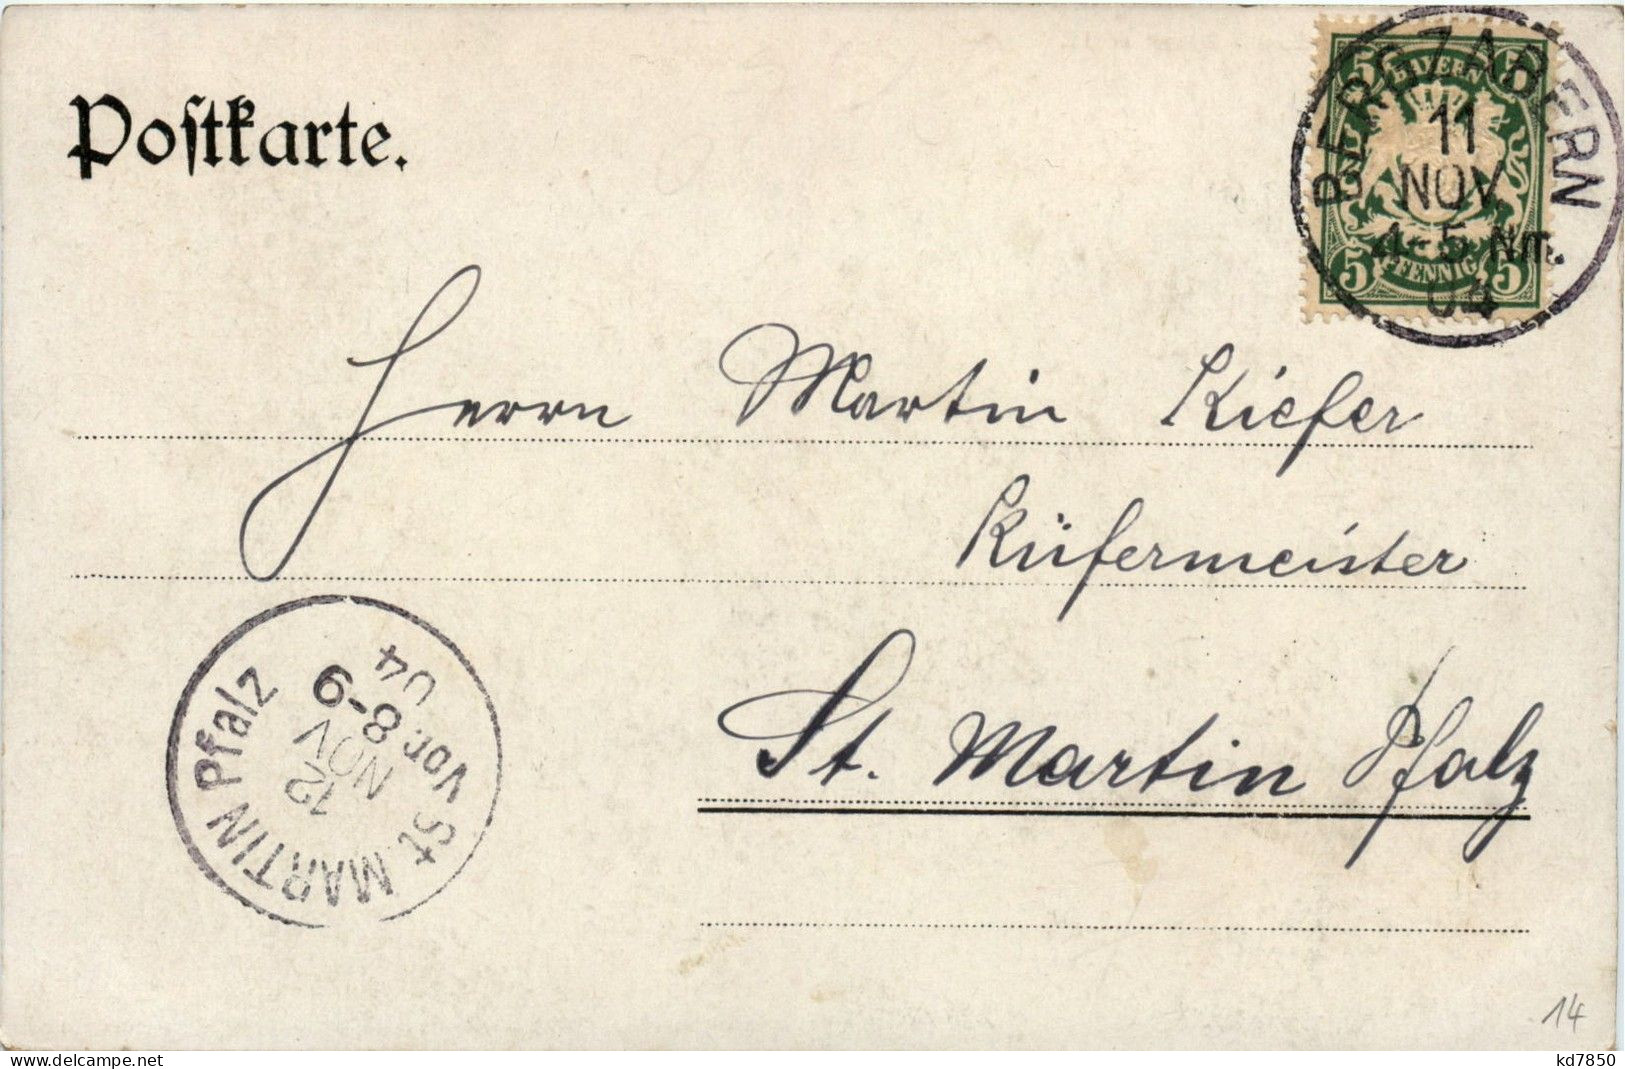 Postkarte.
5 BAYERN 5
5 PFENNIG 5
BERGZABERN
11
NOV.
4-5 Nm.
04
Herrn Martin Kiefer
Küfermeister
St. Martin Pfalz
St. MARTIN Pfalz
12
NOV
Vor. 8-9
04
14
www.delcampe.net
kd7850